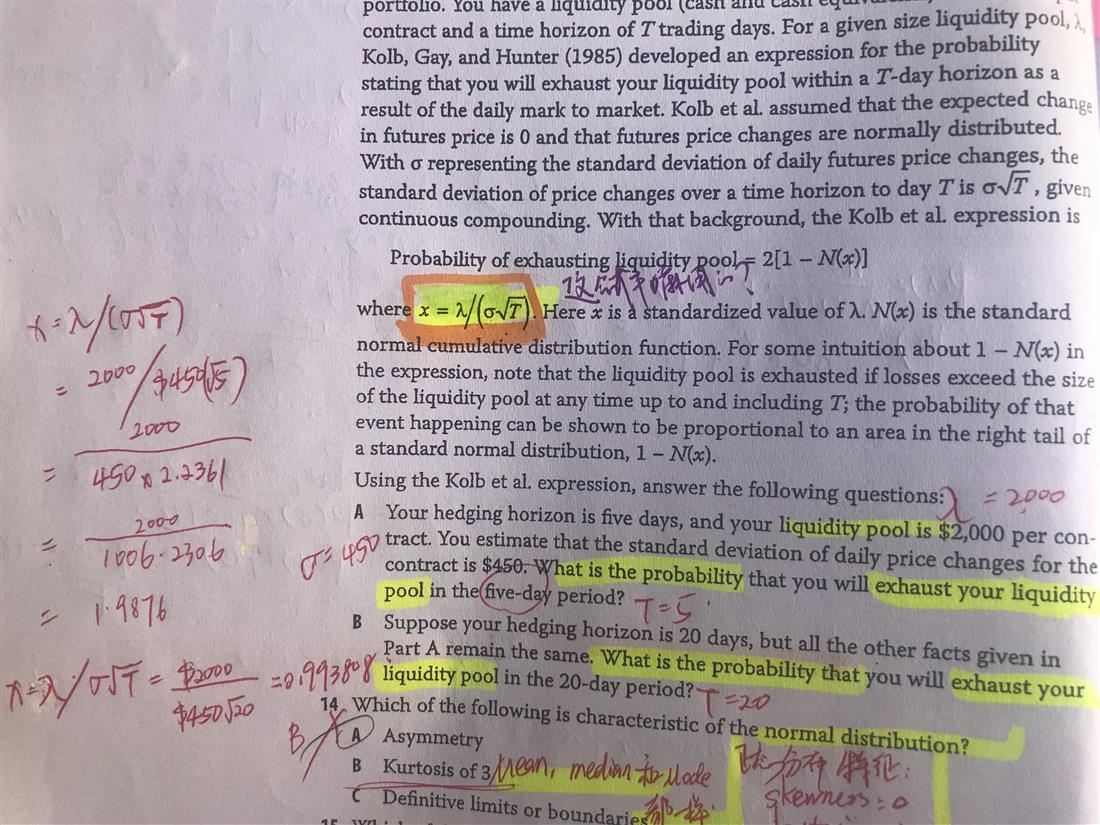 portfolio. You have a liquidity pool (cash and cash
contract and a time horizon of T trading days. For a given size liquidity pool, λ,
Kolb, Gay, and Hunter (1985) developed an expression for the probability
stating that you will exhaust your liquidity pool within a T-day horizon as a
result of the daily mark to market. Kolb et al. assumed that the expected change
in futures price is 0 and that futures price changes are normally distributed.
With σ representing the standard deviation of daily futures price changes, the
standard deviation of price changes over a time horizon to day T is σ√T, given
continuous compounding. With that background, the Kolb et al. expression is
Probability of exhausting liquidity pool = 2[1 − N(x)]
where x = λ/(σ√T). Here x is a standardized value of λ. N(x) is the standard
normal cumulative distribution function. For some intuition about 1 − N(x) in
the expression, note that the liquidity pool is exhausted if losses exceed the size
of the liquidity pool at any time up to and including T; the probability of that
event happening can be shown to be proportional to an area in the right tail of
a standard normal distribution, 1 − N(x).
Using the Kolb et al. expression, answer the following questions: λ = 2000
A Your hedging horizon is five days, and your liquidity pool is $2,000 per con-
tract. You estimate that the standard deviation of daily price changes for the
contract is $450. What is the probability that you will exhaust your liquidity
pool in the five-day period? T=5
B Suppose your hedging horizon is 20 days, but all the other facts given in
Part A remain the same. What is the probability that you will exhaust your
liquidity pool in the 20-day period? T=20
14 Which of the following is characteristic of the normal distribution?
B
A Asymmetry
B Kurtosis of 3 Mean, median 和 Mode
都一样
C Definitive limits or boundaries
分布 特征:
skewness=0
x = λ/(σ√T)
= 2000/$450(√5)
2000
= 450 × 2.2361
2000
= 1006.2306
= 1.9876
σ=450
x=λ/σ√T = $2000 = 0.993808
$450√20